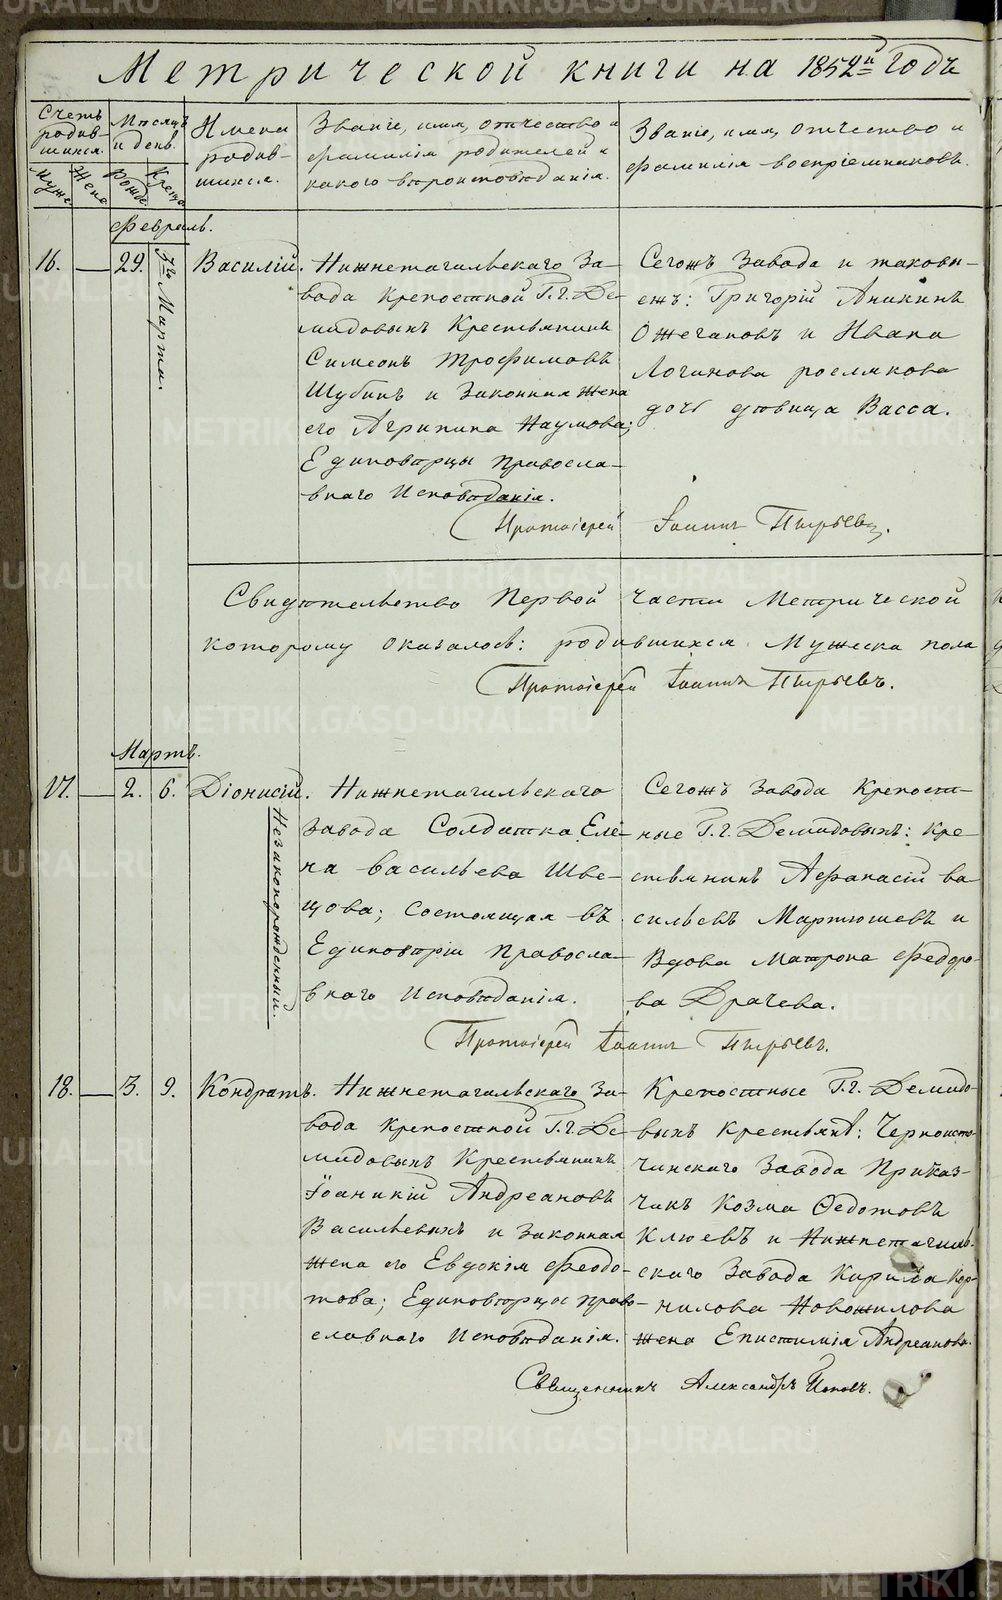 Метрической книги на 1852й Годъ
Счетъ
родив-
шихся.
Муже
Жене
Мѣсяцъ
и день.
Рожд.
Крещ.
Имена
родив-
шихся.
Званіе, имя, отчество и
фамилія родителей и
какого вѣроисповѣданія.
Званіе, имя, отчество и
фамилія воспріемниковъ.
Февраль.
16.
29.
3го Марта.
Василій.
Нижнетагильскаго За-
вода крепостной Г.г. Де-
мидовыхъ Крестьянинъ
Симеонъ Трофимовъ
Шубинъ и Законная жена
его Агрипина Наумова;
Единовѣрцы Правосла-
внаго Исповѣданія.
Сегожъ Завода и таковы-
ежъ: Григорій Аникинъ
Ожегановъ и Ивана
Логинова рослякова
дочь дѣвица Васса.
Протоіерей Іоаннъ Пырьевъ.
Свидѣтельство Первой части Метрической
которому оказалось: родившихся Мужеска пола
Протоіерей Іоаннъ Пырьевъ.
Мартъ.
17.
2.
6.
Діонисій.
Незаконорожденный.
Нижнетагильскаго
завода Солдатка Еле-
на васильева Шве-
цова; состоящая въ
Единовѣріи Правосла-
внаго Исповѣданія.
Сегожъ Завода Крепост-
ные Г.г. Демидовыхъ: кре
стьянинъ Афанасій ва-
сильевъ Мартюшевъ и
Вдова Матрона Федоро-
ва Драчева.
Протоіерей Іоаннъ Пырьевъ.
18.
3.
9.
Кондратъ.
Нижнетагильскаго За-
вода крепостной Г.г. Де-
мидовыхъ Крестьянинъ
Іоаникій Андреановъ
Васильевыхъ и законная
жена его Евдокія Федо-
това; Единовѣрцы Право-
славнаго Исповѣданія.
Крепостные Г.г. Демидо-
выхъ крестьянѣ: Черноисто-
чинскаго Завода Приказ-
чикъ Козма Федотовъ
Клюевъ и Нижнетагиль-
скаго Завода Кирила Кор-
нилова Новожилова
жена Епистимія Андреанова.
Священникъ Александръ Поповъ.
METRIKI.GASO-URAL.RU